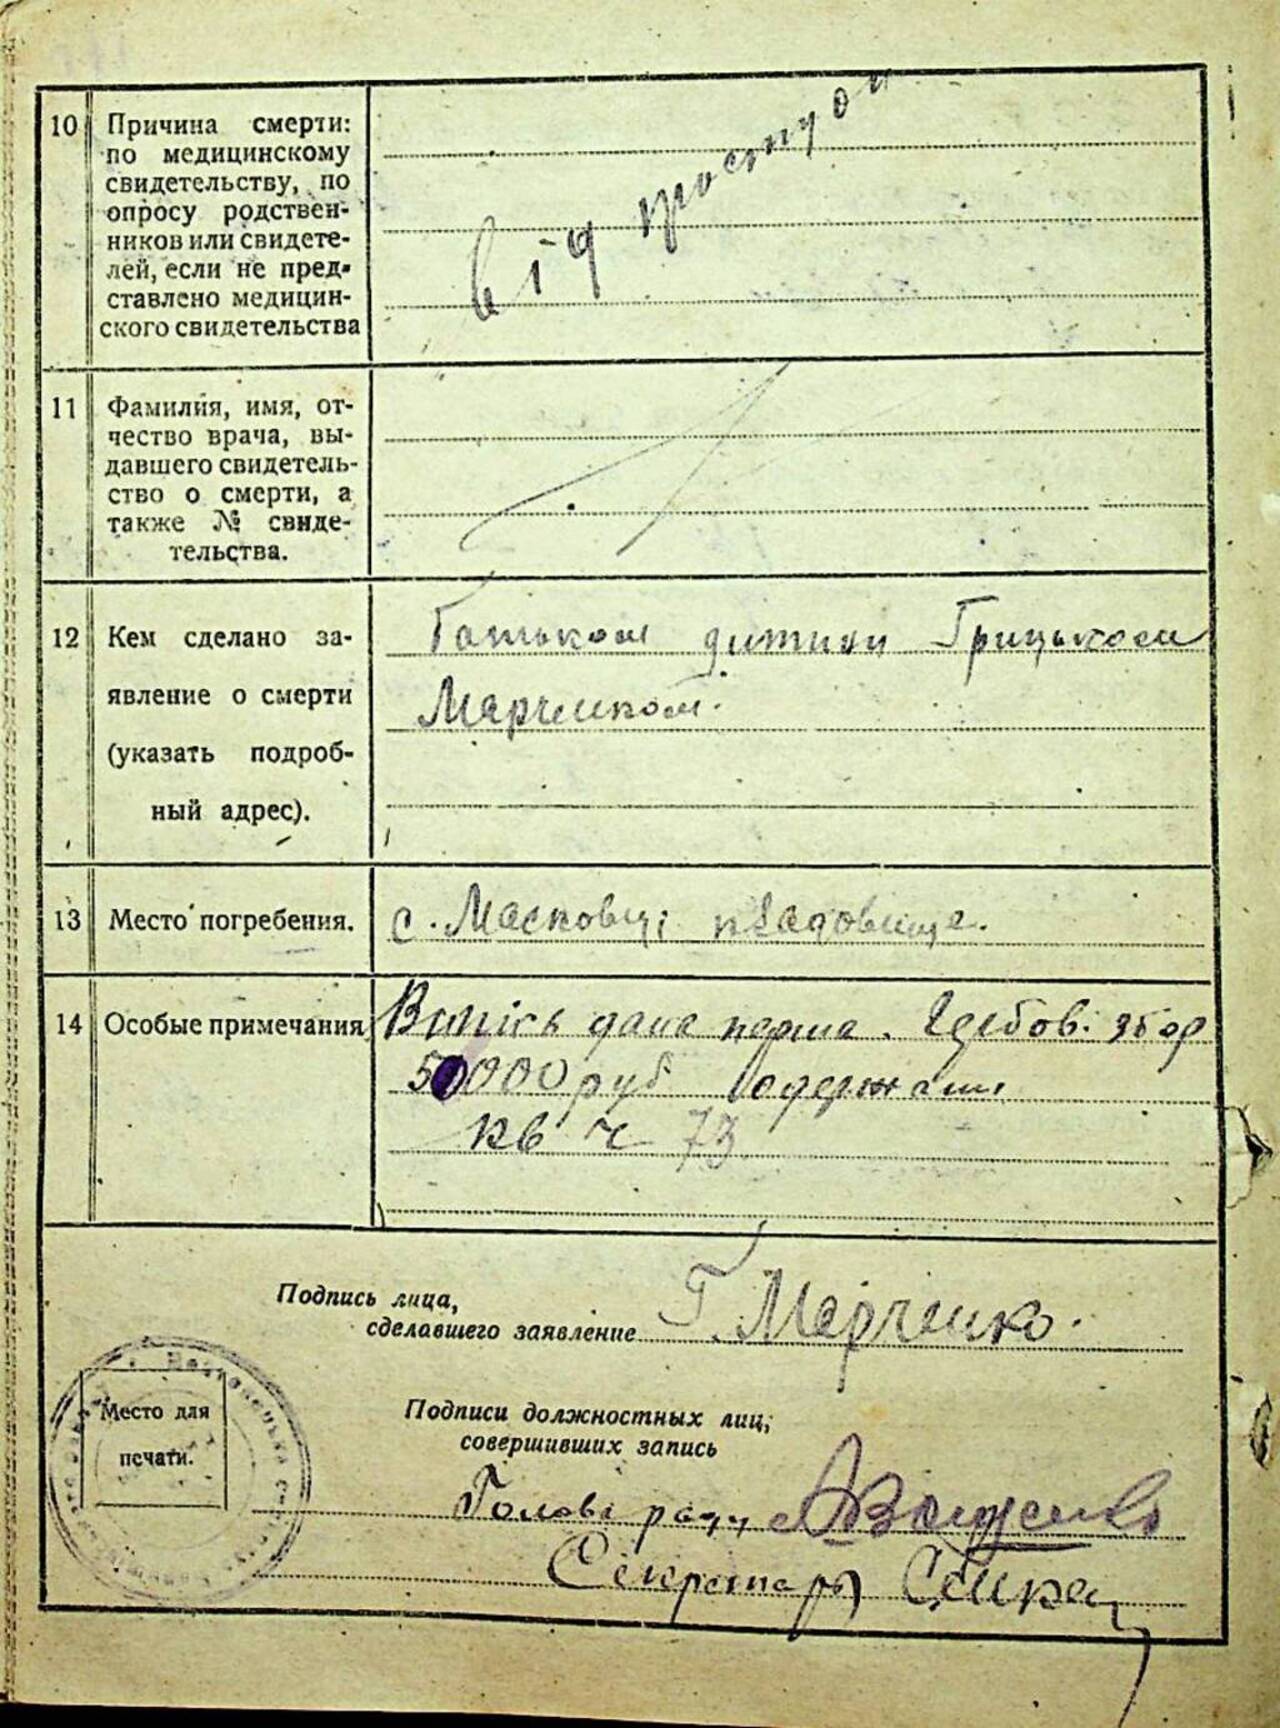 10
Причина смерти:
по медицинскому
свидетельству, по
опросу родствен-
ников или свидете-
лей, если не пред-
ставлено медицин-
ского свидетельства
від простуди
11
Фамилия, имя, от-
чество врача, вы-
давшего свидетель-
ство о смерти, а
также № свиде-
тельства.
12
Кем сделано за-
явление о смерти
(указать подроб-
ный адрес).
Батьком дитини Грицьком
Марченком.
13
Место погребения.
с. Масковці кладовище.
14
Особые примечания
Випись дана перша. Гербов. збор
50000 руб одержані
кв ч 73
Подпись лица,
сделавшего заявление
Г. Марченко.
Место для
печати.
Подписи должностных лиц,
совершивших запись
Голова ради
Секретарь